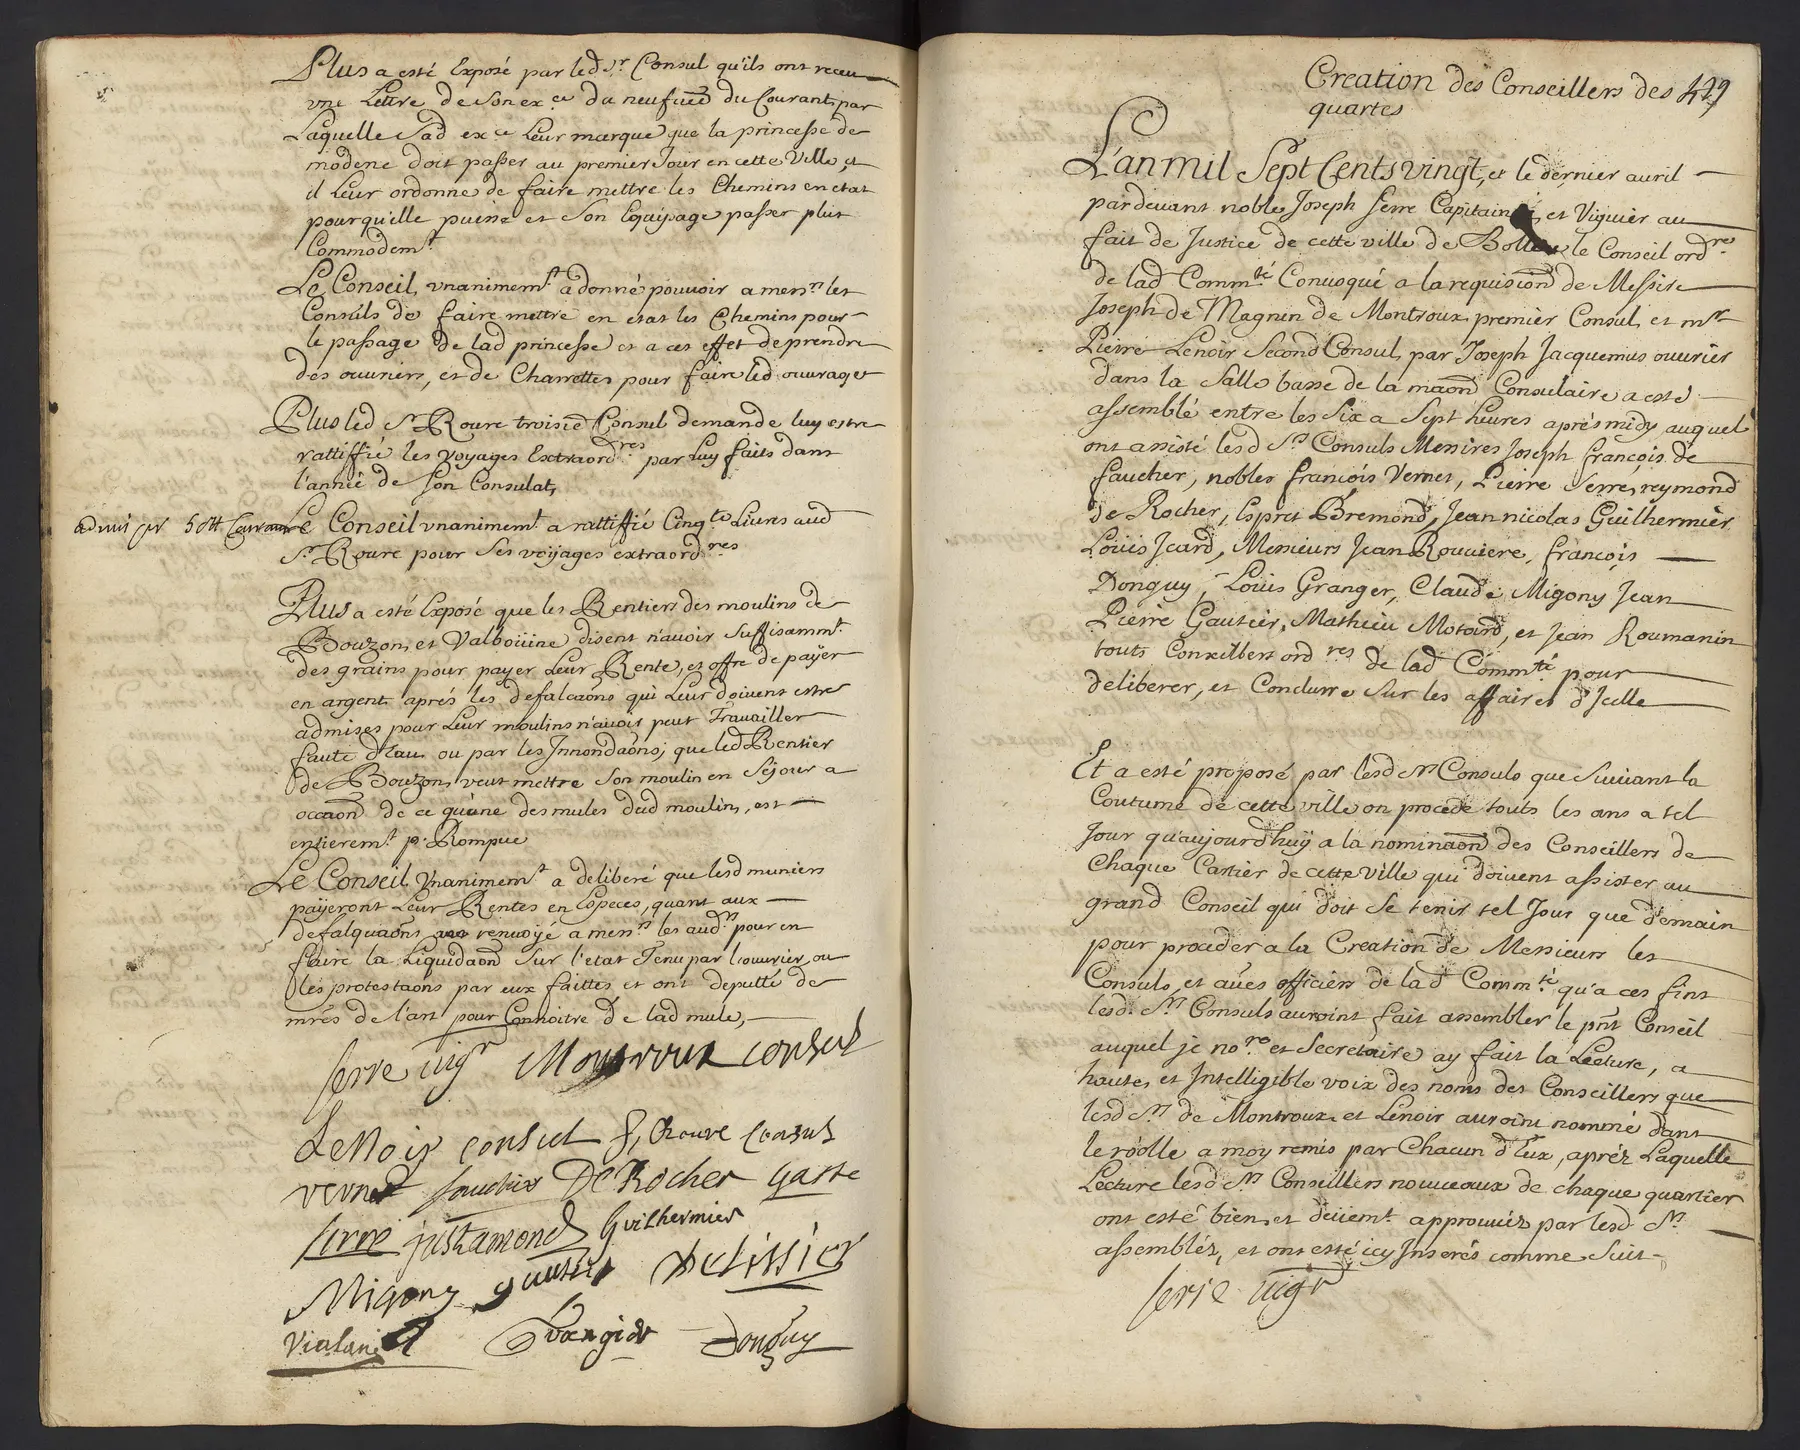 Plus a esté Exposé par led Sr Consul qu'ils ont receu
une Lettre de Son ex.ce du neufvie du Courant, par
Laquelle Sad ex.ce Leur marque que la princesse de
modene doit passer au premier Jour en cette Ville, et
il Leur ordonne de faire mettre les Chemins en etat
pourqu'elle puisse et Son Equipage passer plus
Commodemt
Le Conseil unanimemt a donné pouvoir a messrs les
Consuls de faire mettre en etat les Chemins pour
le passage de lad princesse et a cet effet de prendre
des ouvriers, et de Charrettes pour faire led ouvrages
Plus led Sr Roure troisie Consul demande luy estre
rattiffié les voyages Extraordres par Luy faits dans
l'année de Son Consulat,
admis pr 5 Courant
Le Conseil unanimemt a rattiffié Cinqte Livres aud
Sr Roure pour Ses voyages extraordres
Plus a esté Exposé que les Rentiers des moulins de
Bouzon, et Valbouïine disent n'avoir Suffisammt
des grains pour payer Leur Rente, et offre de payer
en argent aprés les defalcaons qui Leur doivent estre
admises pour Leur moulins n'avoir peut Travailler
faute d'Eau ou par les Innondaons; que led Rentier
de Bouzon, veut mettre Son moulin en Séjour a
occaon de ce qu'une des mules dud moulin, est
entieremt p. Rompue
Le Conseil Unanimemt a deliberé que lesd muniers
payeront Leur Rentes en Especes, quant aux
defalquaons renvoyé a messrs les audrs pour en
faire la Liquidaon Sur l'etat Tenu par l'ouvrier, ou
les protestaons par eux faittes et ont deputté de
mrés de l'art pour Connoitre de lad mule,
Serre vigr Montroux consul
LeNoir consul J, Roure Consul
vernet fauchier De Rocher Gaste
Serre justamond Guilhermier
Migony gautier Delissier
Vialani Grangier Donguy
Creation des Conseillers des 479
quartes
L'an mil Sept Cents vingt, et le dernier avril
pardevant noble Joseph Serre Capitaine, et Viguier au
fait de Justice de cette ville de Bollene le Conseil ordre
de lad Commté Convoqué a la requision de Messire
Joseph de Magnin de Montroux premier Consul, et mre
Pierre Lenoir Second Consul, par Joseph Jacquemus ouvrier
dans la Salle basse de la maon Consulaire a esté
assemblé entre les Six a Sept heures aprés midy auquel
ont assisté lesd Srs Consuls Messires Joseph françois de
faucher, nobles françois Vernet, Pierre Serre, reymond
de Rocher, Esprit Bremond, Jean nicolas Guilhermier
Loüis Icard, Messieurs Jean Rouviere, françois
Donguy, Loüis Granger, Claude Migony Jean
Pierre Gautier, Mathieu Motard, et Jean Roumanin
touts Conseillers ordres de lad Commté pour
deliberer, et Conclurre Sur les affaires d'Jcelle
Et a esté proposé par lesd Srs Consuls que Suivant la
Coutume de cette ville on procede touts les ans a tel
Jour qu'aujourd'huÿ a la nominaon des Conseillers de
Chaque Cartier de cette ville qui doivent assister au
grand Conseil qui doit se tenir tel Jour que demain
pour proceder a la Creation de Messieurs les
Consuls, et aües officiers de lad Commté qu'a ces fins
lesd. Srs Consuls auroint fait assembler le pnt Conseil
auquel je nore et Secretaire ay fait la Lecture, a
haute, et Intelligible voix des noms des Conseillers que
lesd Srs de Montroux et Lenoir auroint nommé dans
le roolle a moy remis par Chacun d'Eux, aprés Laquelle
Lecture lesd Srs Conseillers nouveaux de chaque quartier
ont esté bien, et deüemt approuvés par lesd. Srs
assemblés, et ont esté icy Inserés comme Suit
Serre vigr